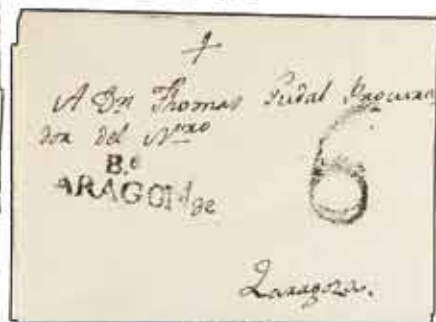 A Dn Thomas Pidal Procura
dor del Nro
B.e
ARAGON
6
Zaragoza.